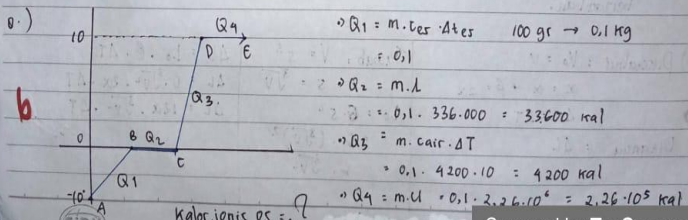 0.)
10
Q4
D E
Q3
b
0
B Q2
C
Q1
-10°
A
Kalor jenis es = ?
•) Q1 = m . Ces . Δtes 100 gr → 0,1 kg
= 0,1
•) Q2 = m . L
= 0,1 . 336.000 = 33.600 kal
•) Q3 = m . Cair . ΔT
= 0,1 . 4200 . 10 = 4200 kal
•) Q4 = m . U = 0,1 . 2,26 . 10⁶ = 2,26 . 10⁵ kal